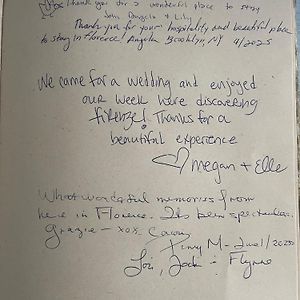 Thank you for a wonderful place to stay
Thank you for your hospitality and beautiful place
to stay in Florence! Angela Brooklyn, NY 4/2025
We came for a wedding and enjoyed
our week here discovering
firenze! Thanks for a
beautiful experience
Megan + Elle
What wonderful memories from
here in Florence. Its been spectacular.
Grazie - xox
Lori, Jack